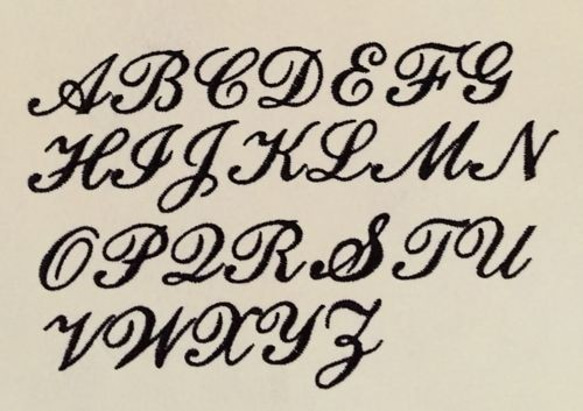 ABCDEFG
HIJKLMN
OPQRSTU
VWXYZ